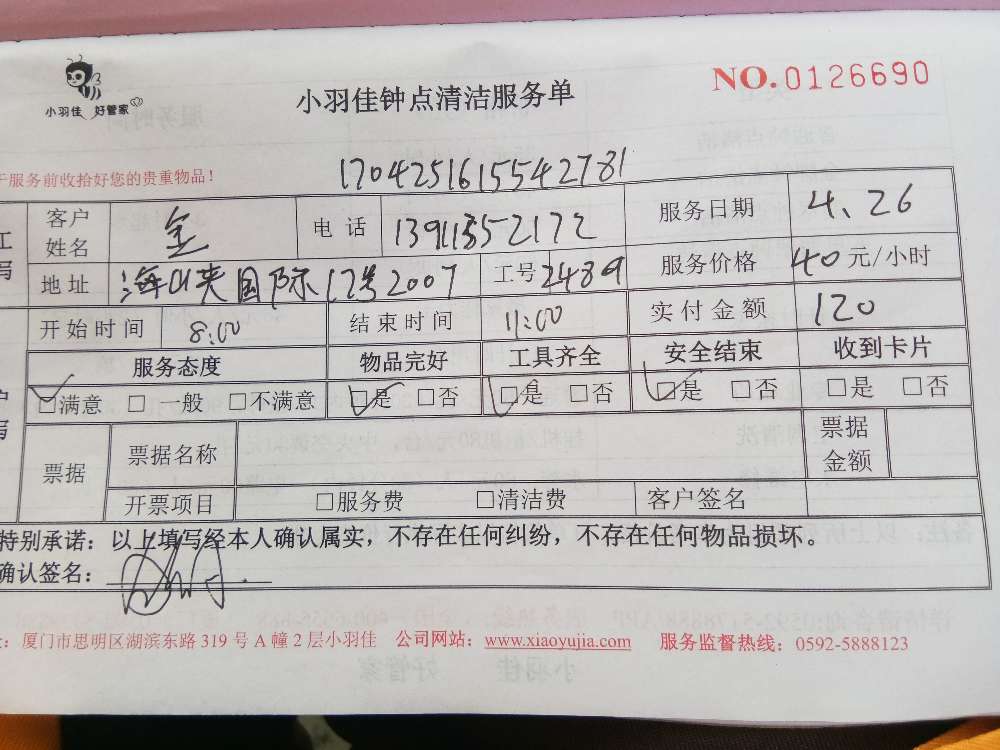 小羽佳 好管家
小羽佳钟点清洁服务单
NO.0126690
于服务前收拾好您的贵重物品！
1704251615542781
客户姓名 金 电话 13911352172 服务日期 4.26
地址 海山夹国际17号2007 工号 2489 服务价格 40元/小时
开始时间 8:00 结束时间 11:00 实付金额 120
服务态度 物品完好 工具齐全 安全结束 收到卡片
☑满意 □一般 □不满意 ☑是 □否 ☑是 □否 ☑是 □否 □是 □否
票据 票据名称 票据金额
开票项目 □服务费 □清洁费 客户签名
特别承诺：以上填写经本人确认属实，不存在任何纠纷，不存在任何物品损坏。
确认签名：
：厦门市思明区湖滨东路319号A幢2层小羽佳 公司网站：www.xiaoyujia.com 服务监督热线：0592-5888123